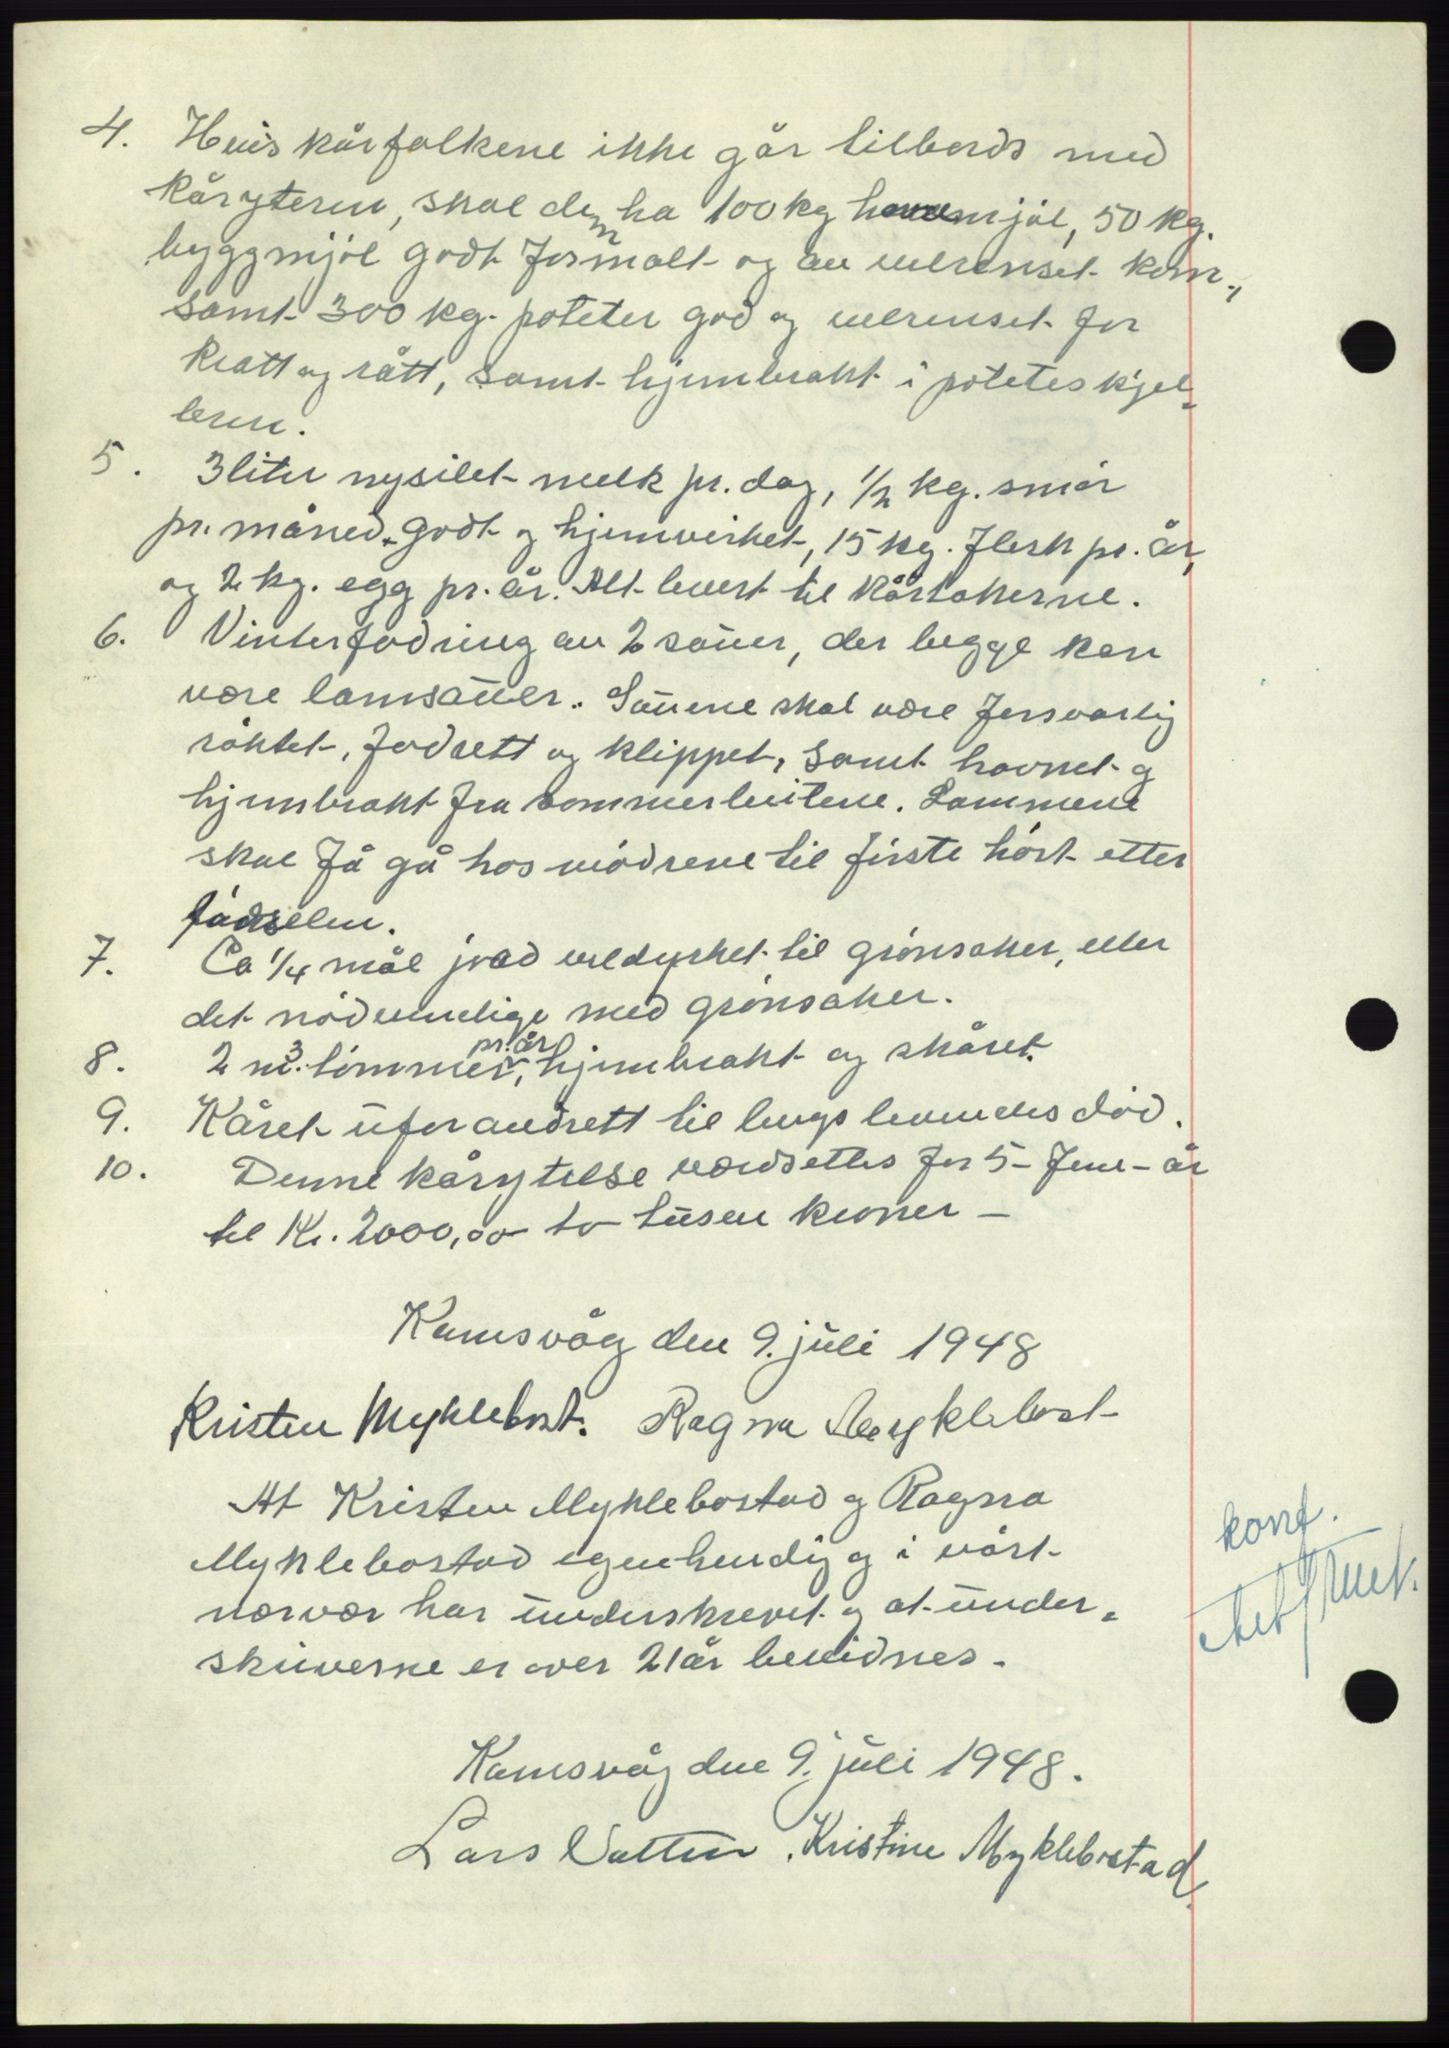 4. Hvis kårfolkene ikke går tilbords med
kåryteren, skal dem ha 100 kg havremjøl, 50 kg.
byggmjøl godt formalt og av velrenset korn,
samt 300 kg. poteter god og velrenset for
kratt og rått, samt hjembrakt i poteteskjel-
leren.
5. 3 liter nysilet melk pr. dag, 1/2 kg. smør
pr. måned, godt og hjemvirket, 15 kg. flesk pr. år,
og 2 kg. egg pr. år. Alt levert til kårtakerne.
6. Vinterfodring av 2 sauer, der begge kan
være lamsauer. Sauene skal være forsvarlig
røktet, fodrett og klippet, samt havnet og
hjembrakt fra sommerbeitene. Lammene
skal få gå hos mødrene til første høst etter
fødselen.
7. Ca 1/4 mål jord veldyrket til grønsaker, eller
det nødvendige med grønsaker.
8. 2 m3. tømmer pr. år, hjembrakt og skåret.
9. Kåret uforandrett til lengslevendes død.
10. Denne kårytelse verdsettes for 5 - fem - år
til Kr. 2000,00 to tusen kroner -
Kamsvåg den 9. juli 1948
Kristen Myklebost. Ragna Myklebost
At Kristen Myklebostad og Ragna
Myklebostad egenhendig og i vårt
nærvær har underskrevet og at under-
skriverne er over 21 år bevidnes.
Kamsvåg den 9. juli 1948.
Lars Vatten. Kristine Myklebostad
konf.